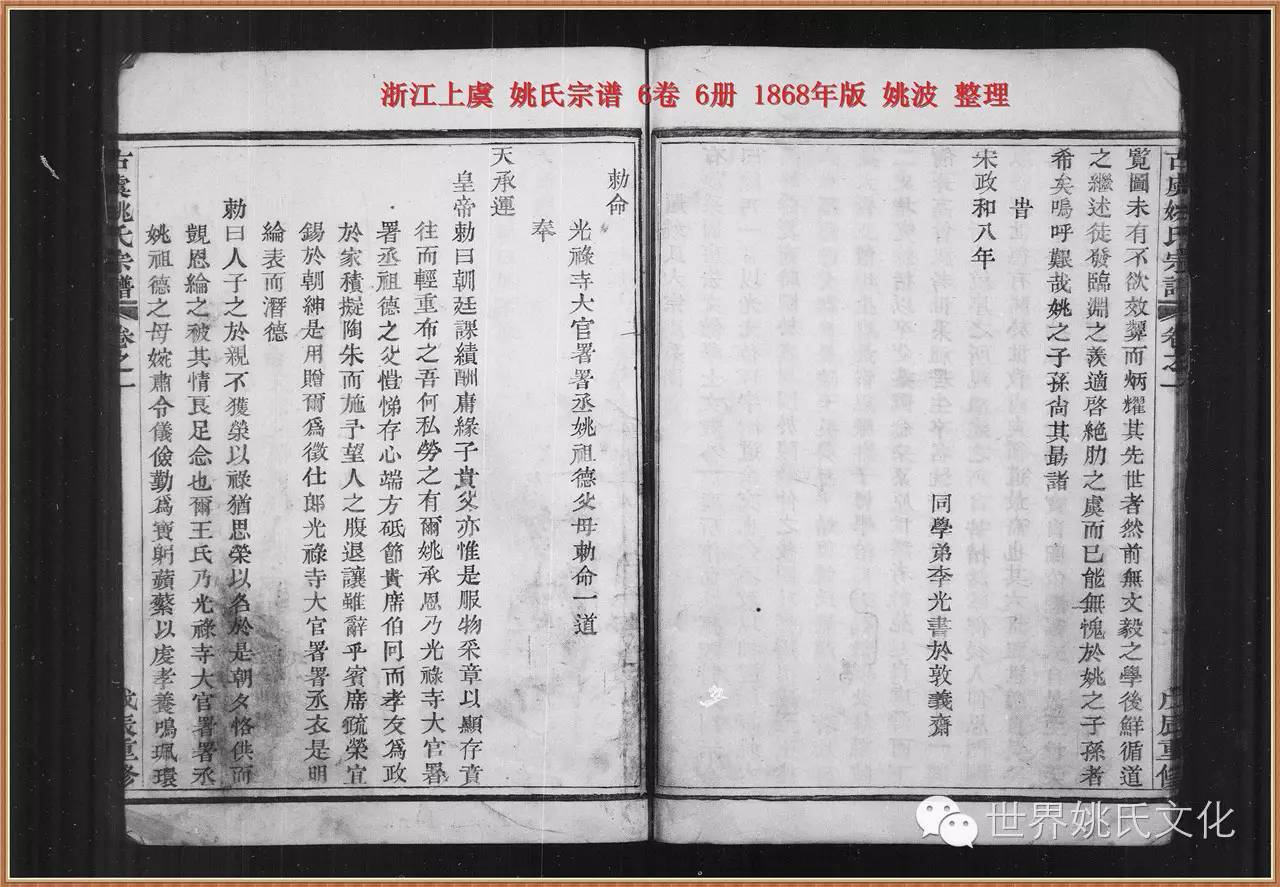 浙江上虞 姚氏宗谱 6卷 6册 1868年版 姚波 整理
古虞姚氏宗譜 卷之一 戊辰重修
覽圖未有不欲效顰而炳耀其先世者然前無文毅之學後鮮循道
之繼述徒發臨淵之羨適啓絶肋之虞而已能無愧於姚之子孫者
希矣嗚呼艱哉姚之子孫尙其勗諸
旹
宋政和八年
同學弟李光書於敦義齋
勅命
光祿寺大官署署丞姚祖德父母勅命一道
奉
天承運
皇帝勅曰朝廷課績酬庸緣子貴父亦惟是服物采章以顯存賁
往而輕重布之吾何私勞之有爾姚承恩乃光祿寺大官署
署丞祖德之父愷悌存心端方砥節貴席伯冏而孝友爲政
於家積擬陶朱而施予望人之腹退讓雖辭乎賓席疏榮宜
錫於朝紳是用贈爾爲徵仕郎光祿寺大官署署丞衣是明
綸表而潛德
勅曰人子之於親不獲榮以祿猶思榮以名於是朝夕恪供而
覬恩綸之被其情良足念也爾王氏乃光祿寺大官署署丞
姚祖德之母婉肅令儀儉勤爲寶躬蘋蘩以虔孝養鳴珮環
古虞姚氏宗譜 卷之一 戊辰重修
世界姚氏文化